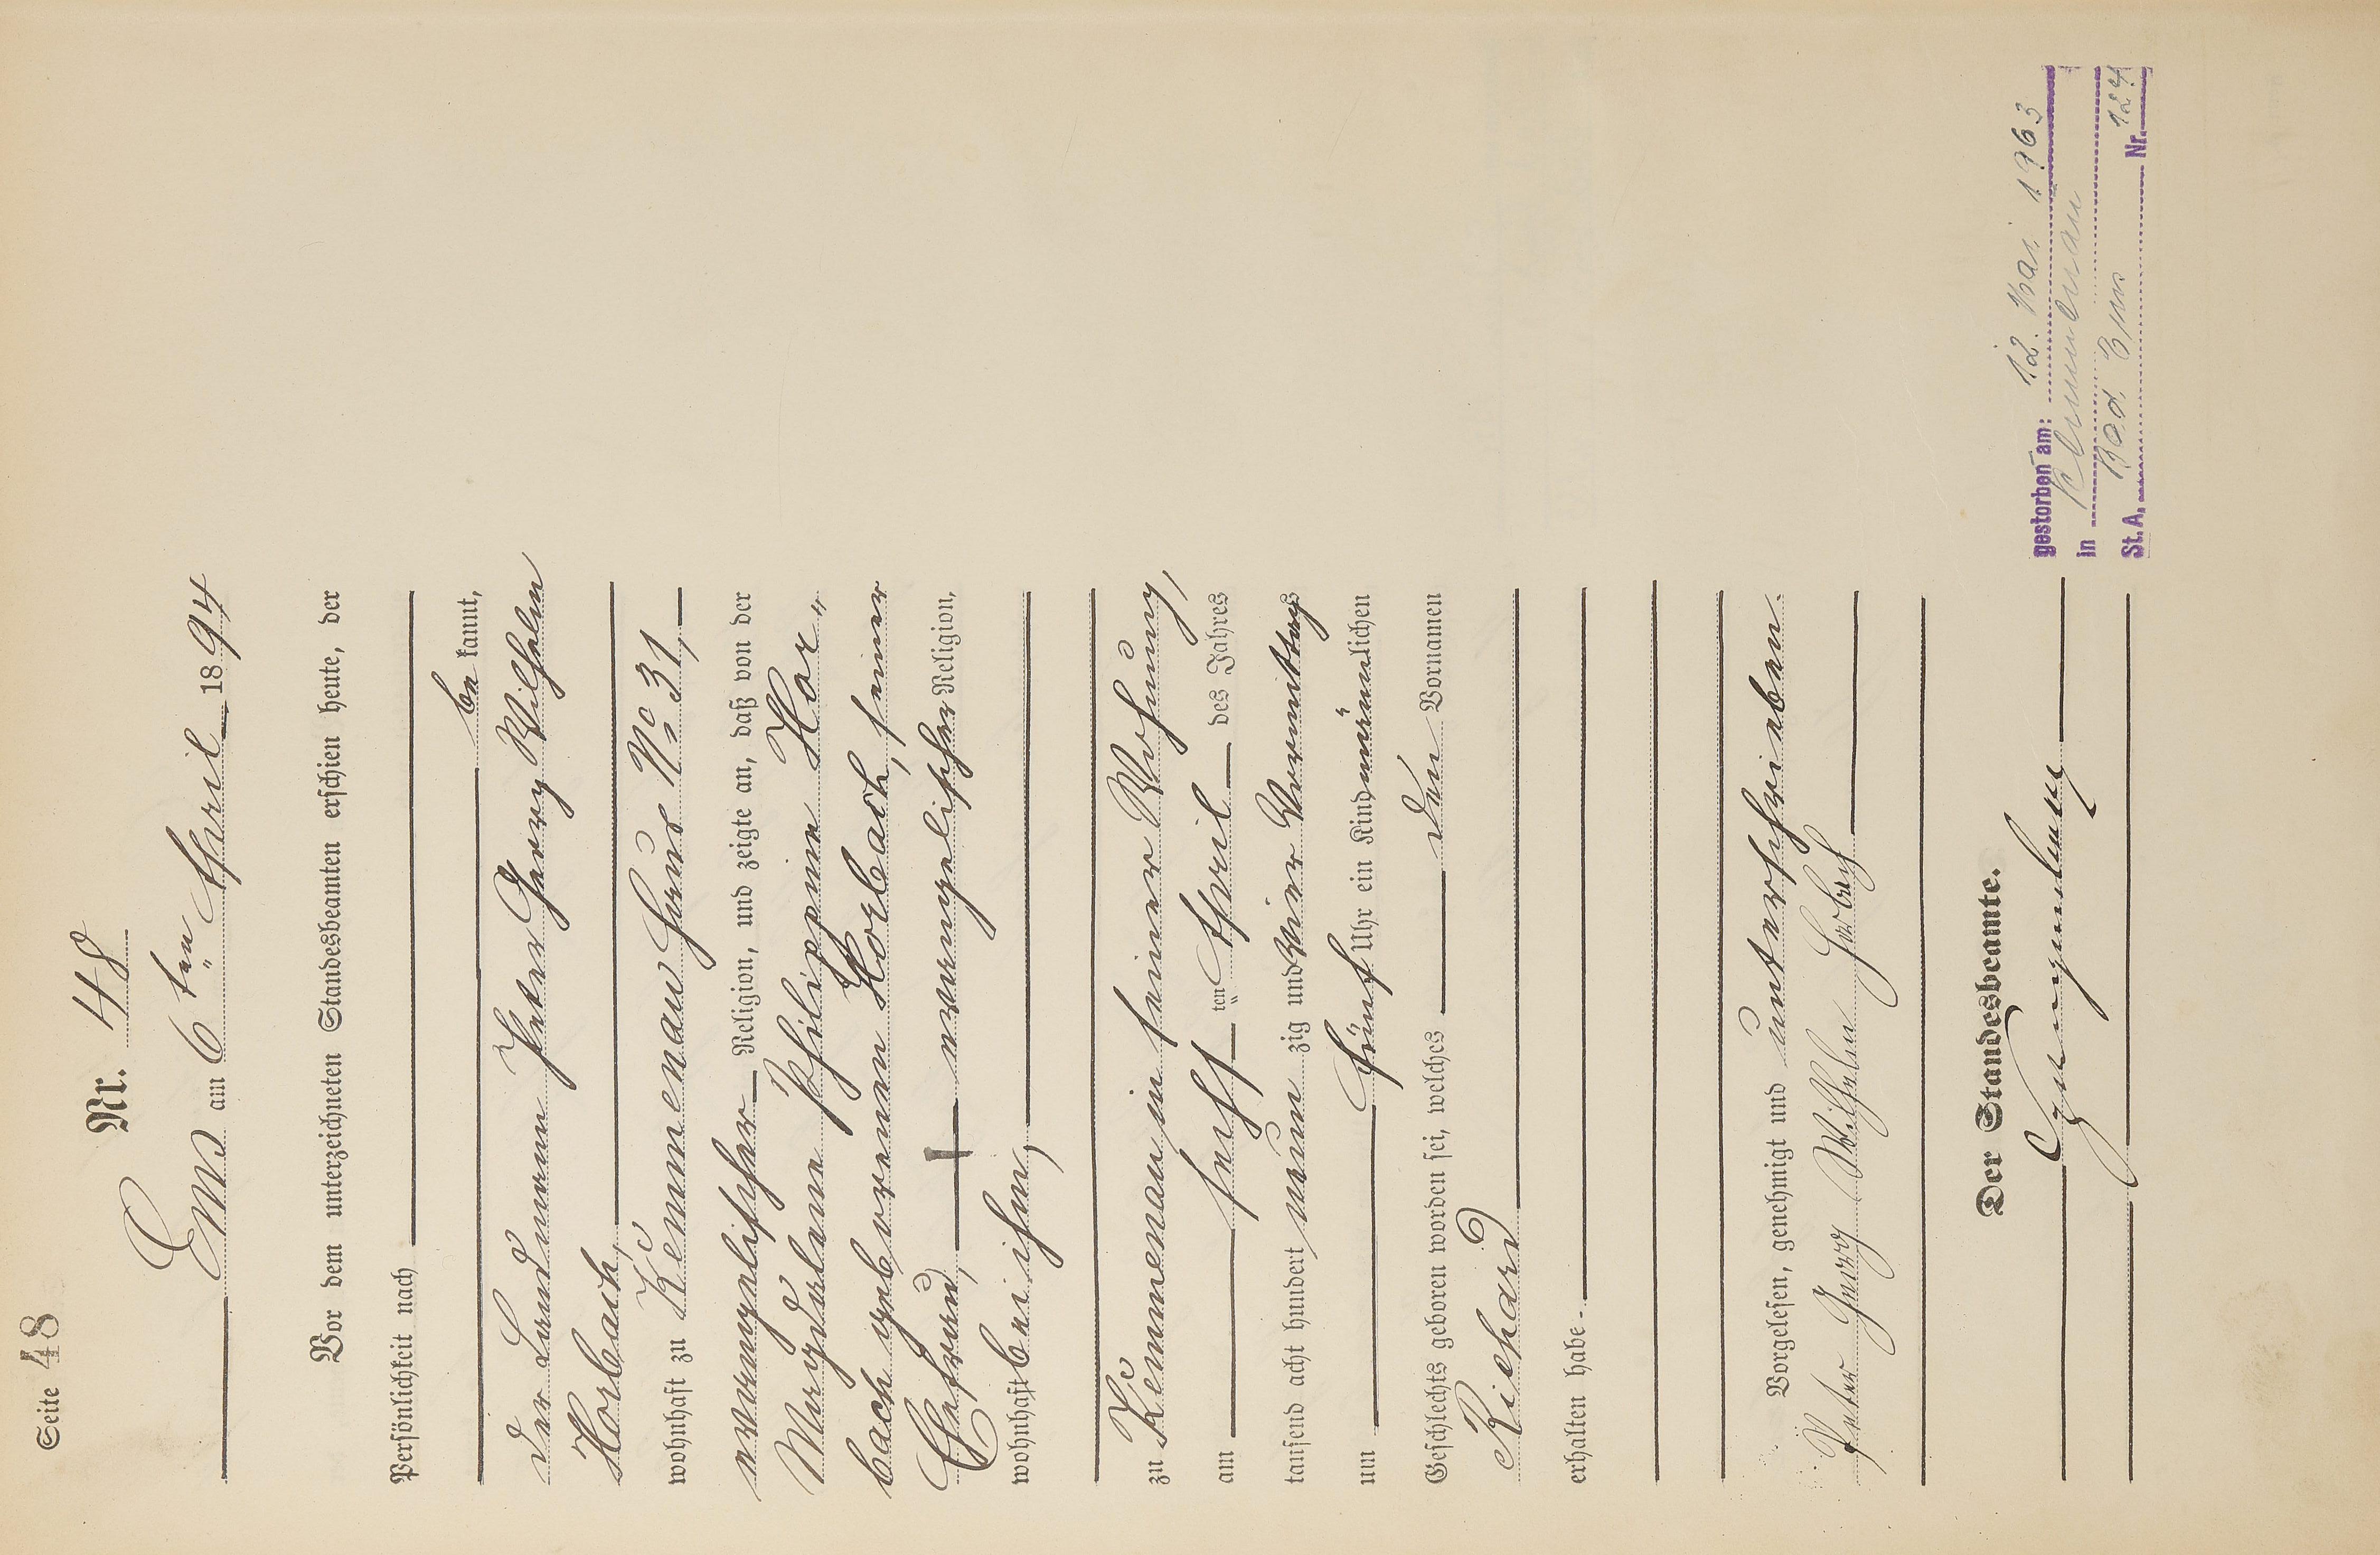 Seite 48
Nr. 48
Ems am 6ten April 1894
Vor dem unterzeichneten Standesbeamten erschien heute, der
Persönlichkeit nach
be kannt,
der Landmann Peter Georg Wilhelm
Horbach,
wohnhaft zu Kemmenau Haus No 31,
evangelischer Religion, und zeigte an, daß von der
Magdalene Philippine Hor„
bach geborenen Horbach, seiner
Ehefrau, evangelischer Religion,
wohnhaft bei ihm,
zu Kemmenau in seiner Wohnung,
am sechs ten April des Jahres
tausend acht hundert neun zig und vier Vormittags
um fünf Uhr ein Kind männlichen
Geschlechts geboren worden sei, welches den Vornamen
Richard
erhalten habe.
Vorgelesen, genehmigt und unterschrieben.
Peter Georg Wilhelm Horbach
Der Standesbeamte.
gestorben am: 12. Mai 1963
in Kemmenau
St. A. Bad Ems Nr. 124